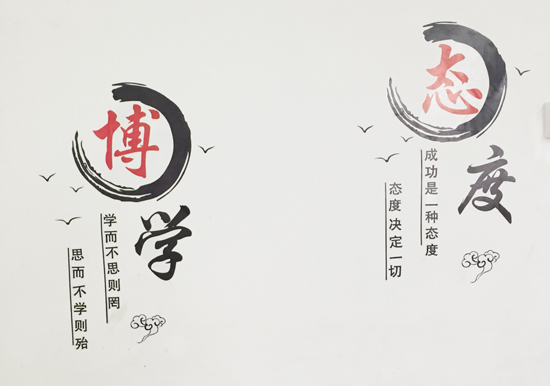 博学
学而不思则罔
思而不学则殆
态度
成功是一种态度
态度决定一切